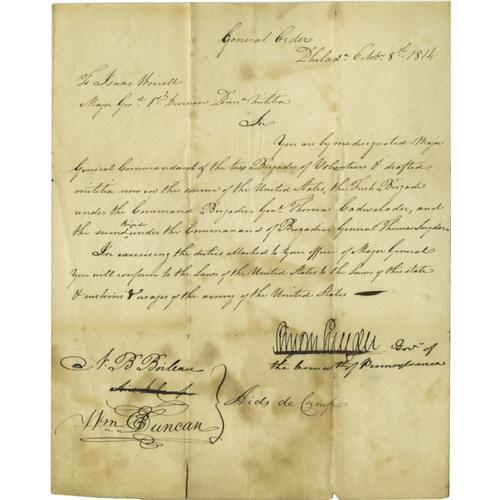 General Order
Philada. Octob. 8th. 1814
To Isaac Worrell
Major Genl. 1st Division Penna. Militia
Sir
You are by me designated Major
General Commandant of the two Brigades of Volunteers & drafted
militia now in the service of the United States, the First Brigade
under the Command Brigadier Genl. Thomas Cadwalader, and
the second Brigade under the Command of Brigadier General Thomas Snyder.
In exercising the duties attached to your office of Major General
You will conform to the Laws of the United States & the Laws of this state
& customs & usages of the army of the United States
Simon Snyder Govr. of
the Comwlth of Pennsylvania
N. B. Boileau
Wm Duncan
Aids de Camp